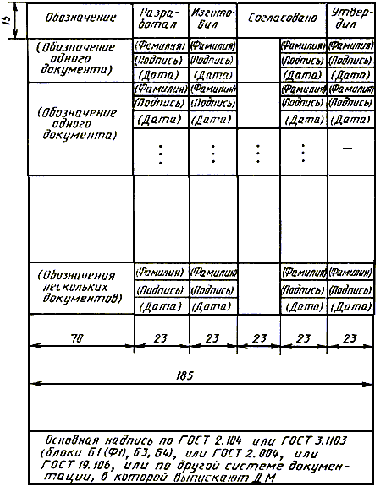 15
Обозначение
Разра-
ботал
Изгото-
вил
Согласовано
Утвер-
дил
(Обозначение
одного
документа)
(Фамилия) (Фамилия) (Фамилия) (Фамилия)
(Подпись) (Подпись) (Подпись) (Подпись)
(Дата) (Дата) (Дата) (Дата)
(Обозначение
одного
документа)
(Фамилия) (Фамилия) (Фамилия) (Фамилия)
(Подпись) (Подпись) (Подпись) (Подпись)
(Дата) (Дата) (Дата) (Дата)
–
(Обозначения
нескольких
документов)
(Фамилия) (Фамилия) (Фамилия) (Фамилия)
(Подпись) (Подпись) (Подпись) (Подпись)
(Дата) (Дата) (Дата) (Дата)
70 23 23 23 23 23
185
Основная надпись по ГОСТ 2.104 или ГОСТ 3.1103
(блоки Б1 (Ф1), Б3, Б4), или ГОСТ 2.004, или
ГОСТ 19.106, или по другой системе докумен-
тации, в которой выпускают ДМ